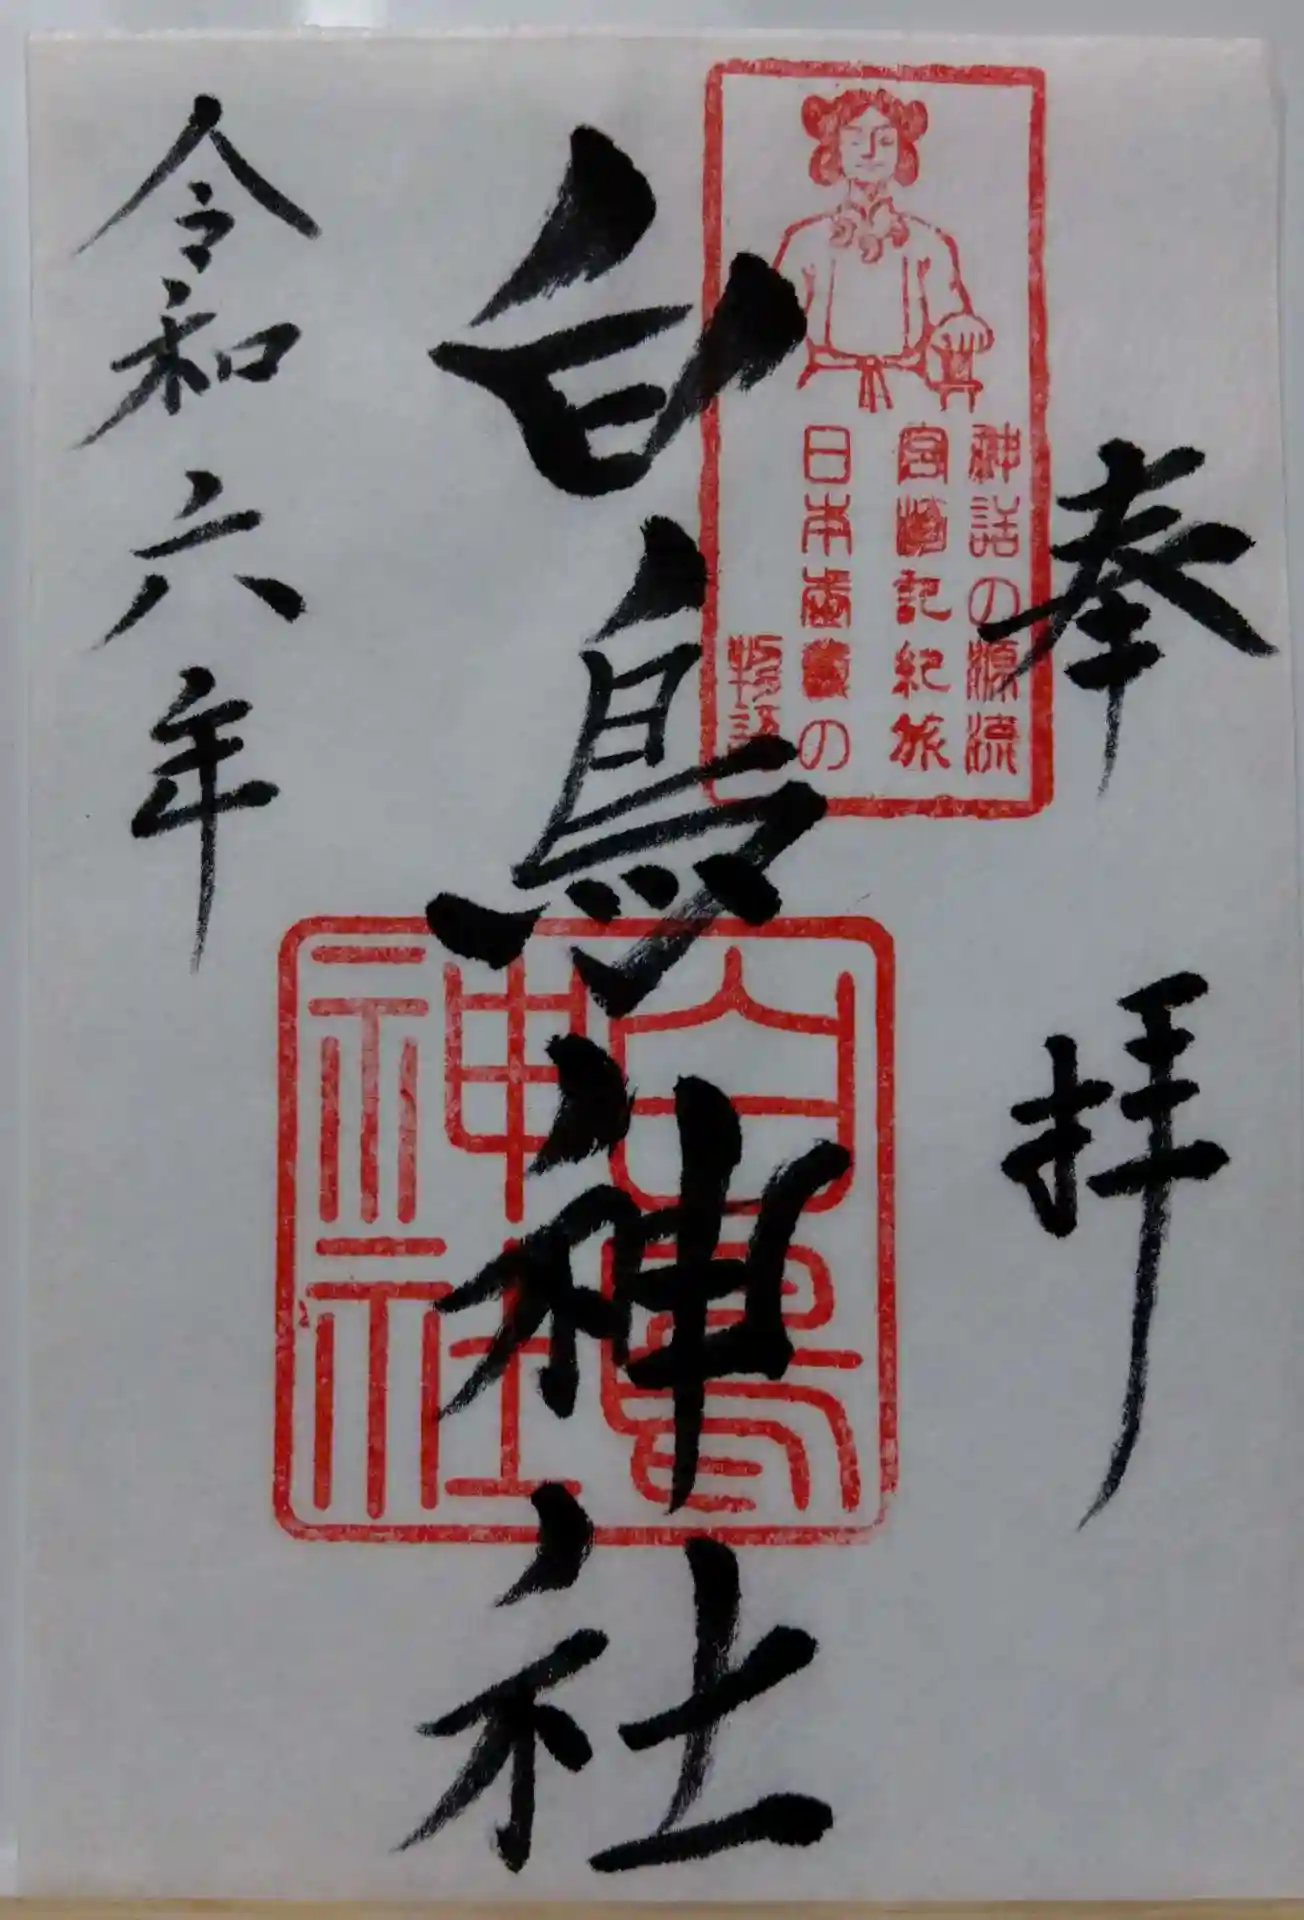 奉拝
神話の源流
宮崎記紀旅
日本書の
物語
白鳥神社
白鳥神社
令和六年